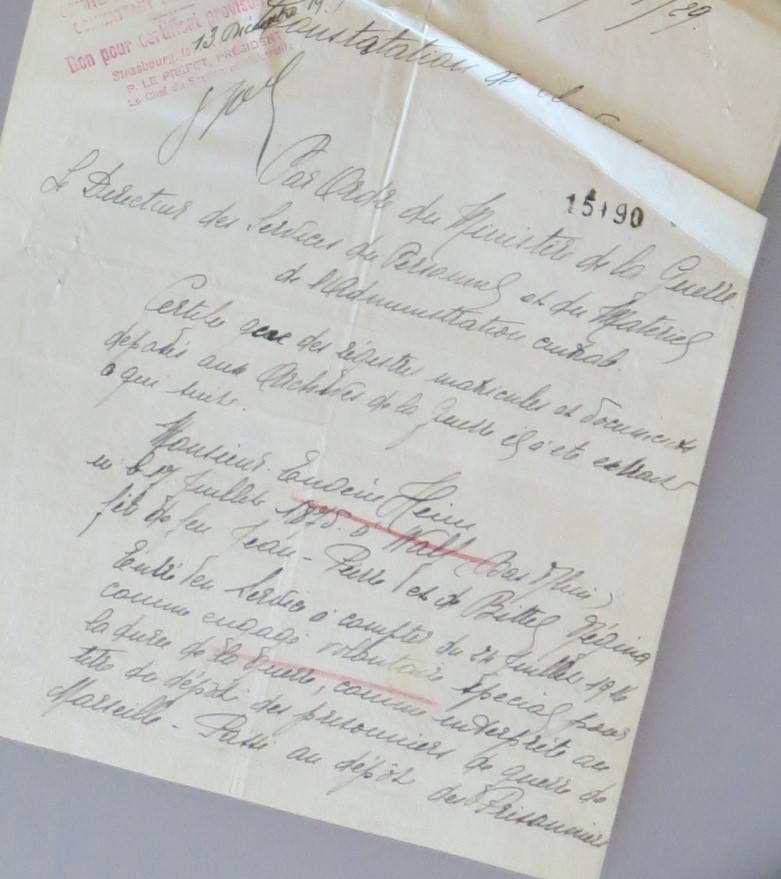 Bon pour certificat provisoire
Strasbourg, le 13 Décembre 19
P. LE PREFET, PRÉSIDENT
Le Chef du Service
Constatation de
15190
Par Ordre du Ministère de la Guerre
Le Directeur des Services du Personnel et du Matériel
de l'Administration centrale.
Certifie que des régistres matricules et documents
déposés aux Archives de la Guerre il a été extrait
ce qui suit.
Monsieur Eugène Heim
né le 17 Juillet 1875 à (Bas Rhin)
fils de feu Jean-Pierre et de Bittel Régina
Entré en Service à compter du 24 Juillet 1916
comme engagé volontaire spécial pour
la durée de la Guerre, comme interprète au
titre du dépôt des prisonniers de guerre de
Marseille - Passé au dépôt des Prisonniers